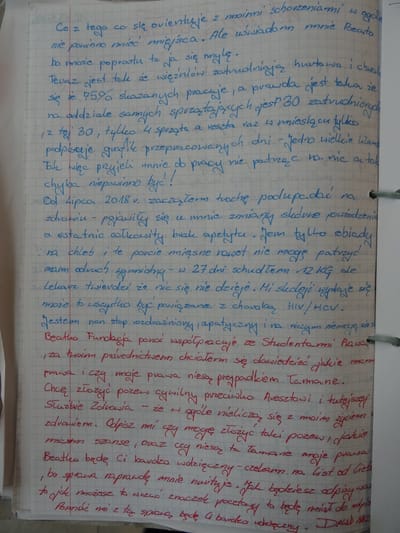 Co z tego co się orientuje z moimi schorzeniami w ogóle
nie powinno mieć miejsca. Ale uświadom mnie Beato
bo może poprostu to ja się mylę.
Teraz jest tak że więźniów zatrudniają hurtowo i
się że 75% skazanych pracuje, a prawda jest taka że
na oddziale samych sprzątających jest 30 zatrudnionych
z tej 30, tylko 4 sprząta a reszta raz w miesiącu tylko
podpisuje grafik przepracowanych dni - jedno wielkie
Tak więc przyjęli mnie do pracy nie patrząc na nic a tak
chyba niepowinno być!
Od Lipca 2018 r. zacząłem trochę podupadać na
zdrowiu - pojawiły się u mnie zmiany skórne
a ostatnio całkowity brak apetytu. Jem tylko obiady
na chleb, i te porcie mięsne nawet nie mogę patrzyć
mam odruch wymiotny - w 27 dni schudłem 12 KG ale
lekarz twierdzi że nic się nie dzieje. Mi
może to wszystko być powiązane z chorobą HIV/HCV.
Jestem non stop rozdrażniony, apatyczny, i na niczym
Beatko Fundacja ponoć współpracuje ze Studentami Prawa
i za twoim pośrednictwem chciałem się dowiedzieć jakie mam
prawa i czy moje prawa niesą przypadkiem Łamane.
Chcę złożyć pozew cywilny przeciwko Aresztowi i tutejszej
Służbie Zdrowia - że w ogóle nieliczą się z moim życiem
zdrowiem. Odpisz mi czy mogę złożyć taki pozew, i jakie
mam szanse, oraz czy niesą to Łamane moje prawa
Beatko będę Ci bardzo wdzięczny - czekam na list od Ciebie
bo sprawa naprawdę mnie nurtuje. Jak będziesz odpisywać
to jak możesz to wrzuć znaczek pocztowy to będę miał do
Pomóż mi z tą sprawą będę Ci bardzo wdzięczny.